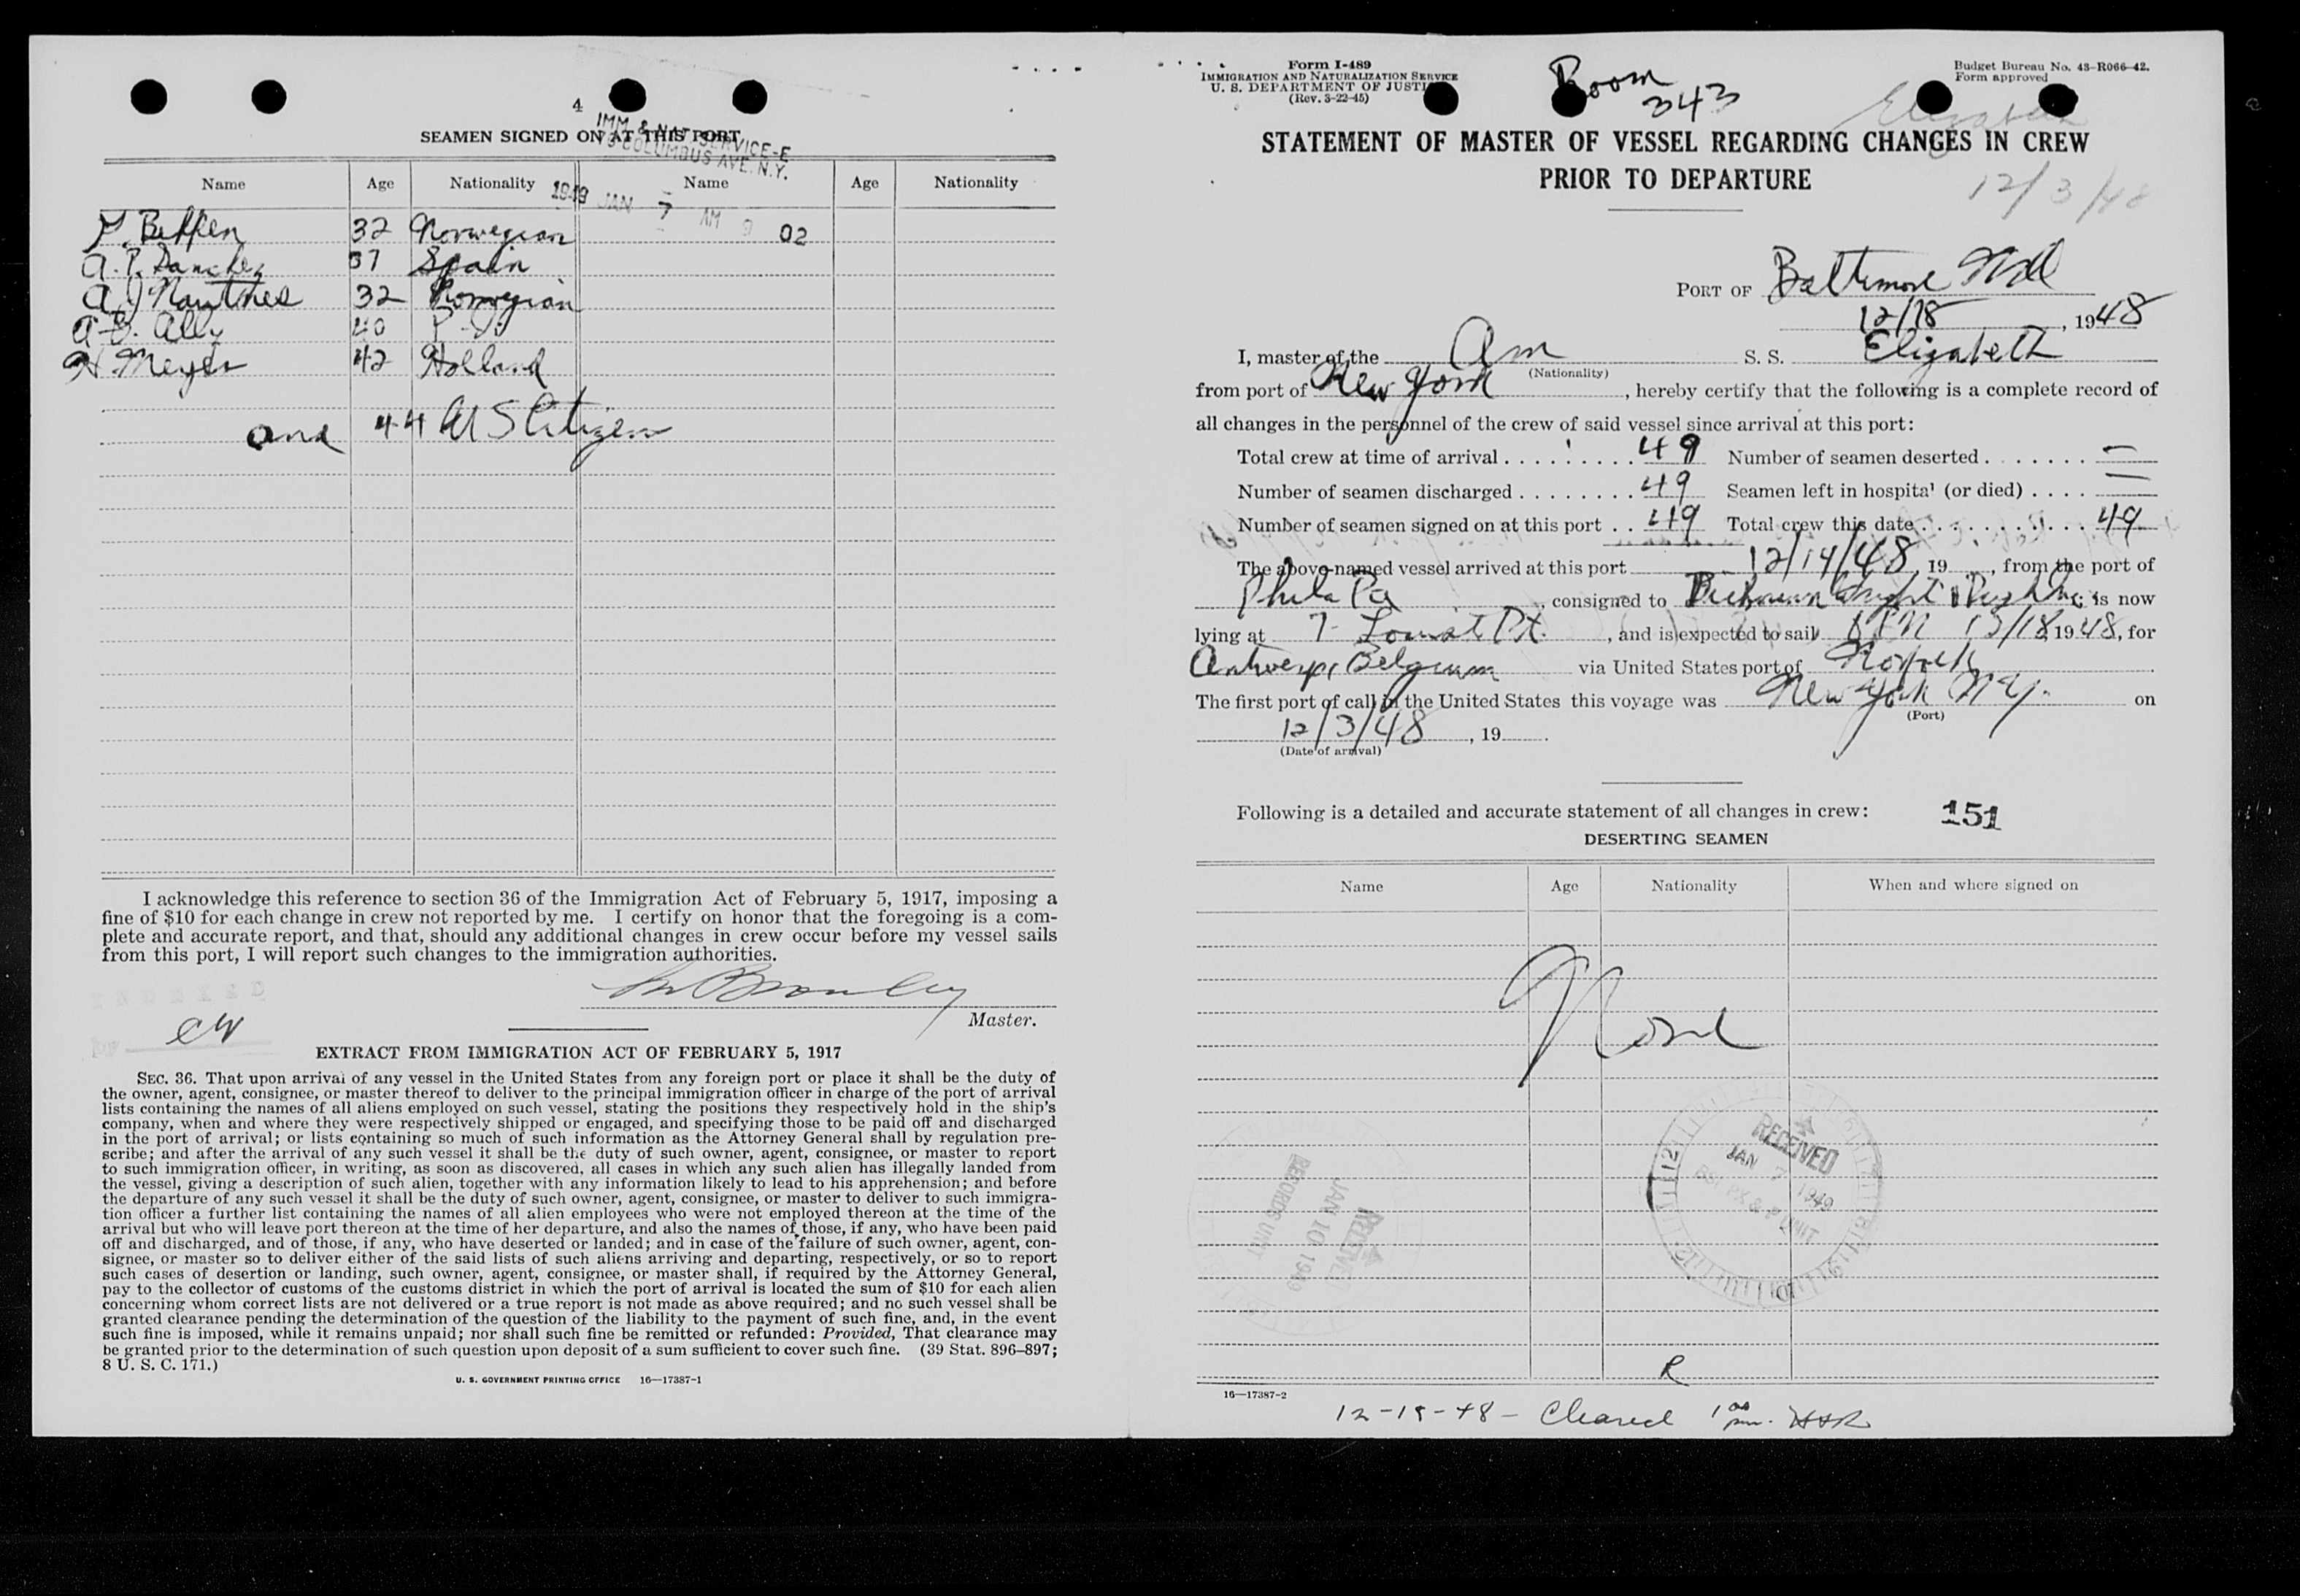 4
IMM & NAT SERVICE-E
COLUMBUS AVE. N.Y.
SEAMEN SIGNED ON AT THIS PORT
1949 JAN 7 AM 9 02
Name Age Nationality Name Age Nationality
32 Norwegian
A. P. Sanchez 37 Spain
32 Norwegian
Ally 40
H Meyer 42 Holland
and 44 U S Citizen
I acknowledge this reference to section 36 of the Immigration Act of February 5, 1917, imposing a
fine of $10 for each change in crew not reported by me. I certify on honor that the foregoing is a com-
plete and accurate report, and that, should any additional changes in crew occur before my vessel sails
from this port, I will report such changes to the immigration authorities.
Master.
EXTRACT FROM IMMIGRATION ACT OF FEBRUARY 5, 1917
SEC. 36. That upon arrival of any vessel in the United States from any foreign port or place it shall be the duty of
the owner, agent, consignee, or master thereof to deliver to the principal immigration officer in charge of the port of arrival
lists containing the names of all aliens employed on such vessel, stating the positions they respectively hold in the ship's
company, when and where they were respectively shipped or engaged, and specifying those to be paid off and discharged
in the port of arrival; or lists containing so much of such information as the Attorney General shall by regulation pre-
scribe; and after the arrival of any such vessel it shall be the duty of such owner, agent, consignee, or master to report
to such immigration officer, in writing, as soon as discovered, all cases in which any such alien has illegally landed from
the vessel, giving a description of such alien, together with any information likely to lead to his apprehension; and before
the departure of any such vessel it shall be the duty of such owner, agent, consignee, or master to deliver to such immigra-
tion officer a further list containing the names of all alien employees who were not employed thereon at the time of the
arrival but who will leave port thereon at the time of her departure, and also the names of those, if any, who have been paid
off and discharged, and of those, if any, who have deserted or landed; and in case of the failure of such owner, agent, con-
signee, or master so to deliver either of the said lists of such aliens arriving and departing, respectively, or so to report
such cases of desertion or landing, such owner, agent, consignee, or master shall, if required by the Attorney General,
pay to the collector of customs of the customs district in which the port of arrival is located the sum of $10 for each alien
concerning whom correct lists are not delivered or a true report is not made as above required; and no such vessel shall be
granted clearance pending the determination of the question of the liability to the payment of such fine, and, in the event
such fine is imposed, while it remains unpaid; nor shall such fine be remitted or refunded: Provided, That clearance may
be granted prior to the determination of such question upon deposit of a sum sufficient to cover such fine. (39 Stat. 896–897;
8 U. S. C. 171.)
U. S. GOVERNMENT PRINTING OFFICE 16—17387-1
Form I-489
IMMIGRATION AND NATURALIZATION SERVICE
U. S. DEPARTMENT OF JUSTI
(Rev. 3-22-45)
Room
343
Budget Bureau No. 43-R066-42.
Form approved
Elizabeth
STATEMENT OF MASTER OF VESSEL REGARDING CHANGES IN CREW
PRIOR TO DEPARTURE
12/3/48
PORT OF Baltimore Md
12/18, 1948
I, master of the Am S. S. Elizabeth
(Nationality)
from port of New York, hereby certify that the following is a complete record of
all changes in the personnel of the crew of said vessel since arrival at this port:
Total crew at time of arrival 49 Number of seamen deserted —
Number of seamen discharged 49 Seamen left in hospital (or died) —
Number of seamen signed on at this port 49 Total crew this date 49
The above-named vessel arrived at this port 12/14/48, 19, from the port of
Phila Pa, consigned to Inc; is now
lying at 7 Locust Pt., and is expected to sail 12/18 1948, for
Antwerp, Belgium via United States port of Norfolk
The first port of call in the United States this voyage was New York N.Y. on
(Port)
12/3/48, 19
(Date of arrival)
Following is a detailed and accurate statement of all changes in crew: 151
DESERTING SEAMEN
Name Age Nationality When and where signed on
None
RECEIVED
JAN 7 1949
RECEIVED
JAN 10 1949
RECORDS UNIT
R
16—17387-2
12-18-48 – Cleared